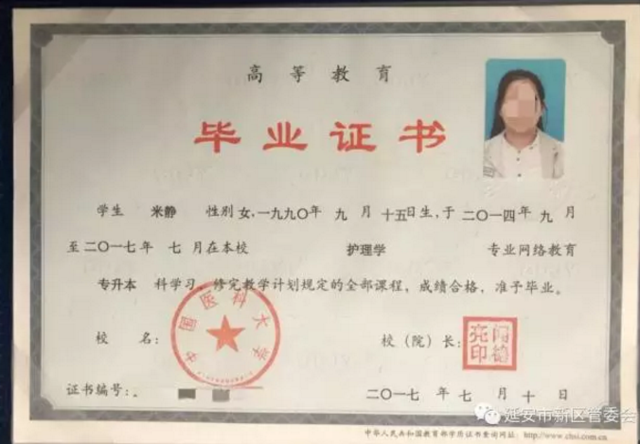 高等教育
毕业证书
学生 米静 性别 女,一九九〇年 九 月 十五日生,于 二〇一四年 九 月
至二〇一七年 七 月在本校 护理学 专业网络教育
专升本 科学习,修完教学计划规定的全部课程,成绩合格,准予毕业。
中国医科大学
校 名: 校(院)长: 闻德亮印
证书编号: 二〇一七年 七 月 十 日
中华人民共和国教育部学历证书查询网址:http://www.chsi.com.cn
延安市新区管委会